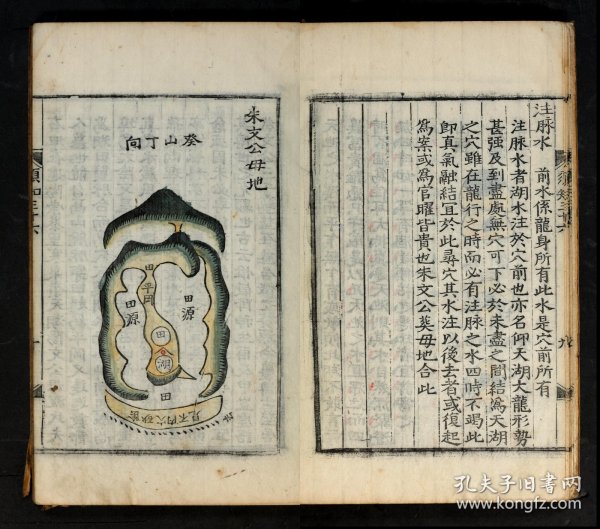 注脉水 前水係龍身所有此水是穴前所有
注脉水者湖水注於穴前也亦名仰天湖大龍形勢
甚强及到盡處無穴可下必於未盡之間結為天湖
之穴雖在龍行之時而必有注脉之水四時不竭此
即真氣融結宜於此尋穴其水注以後去者或復起
為案或為官曜皆貴也朱文公葬母地合此
九
朱文公母地
癸山丁向
田
平岡
田源
田源
田
湖
田
孔夫子旧书网
kongfz.com
kongfz.com